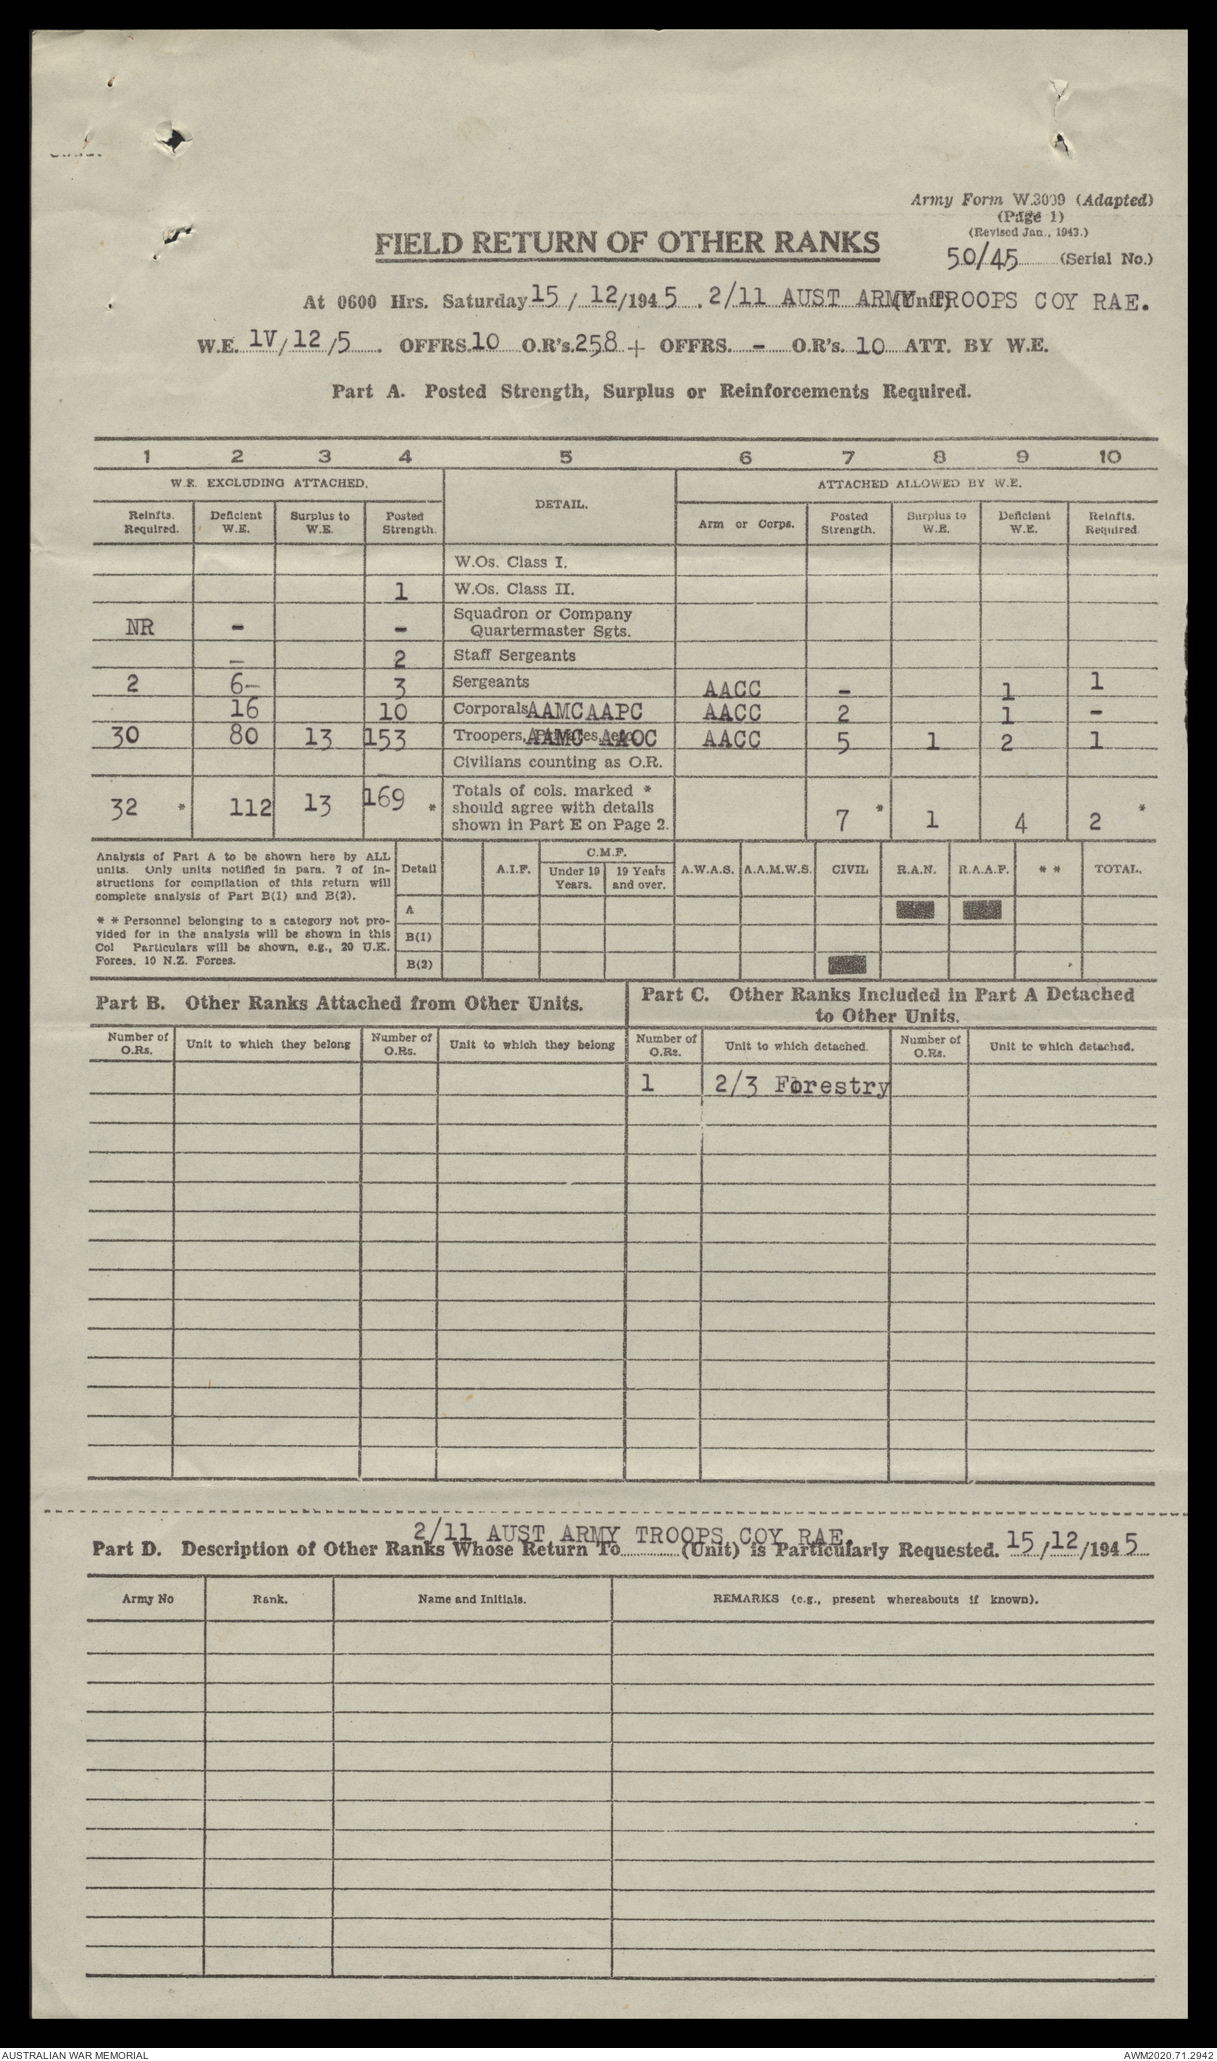 Army Form W.3009 (Adapted)
(Page 1)
(Revised Jan., 1943.)
FIELD RETURN OF OTHER RANKS
50/45 (Serial No.)
At 0600 Hrs. Saturday 15 / 12/1945 . 2/11 AUST ARMY TROOPS COY RAE.
W.E. 1V/12/5 . OFFRS. 10 O.R's. 258 + OFFRS. - O.R's. 10 ATT. BY W.E.
Part A. Posted Strength, Surplus or Reinforcements Required.
1 2 3 4 5 6 7 8 9 10
W.E. EXCLUDING ATTACHED. DETAIL. ATTACHED ALLOWED BY W.E.
Reinfts. Required. Deficient W.E. Surplus to W.E. Posted Strength. Arm or Corps. Posted Strength. Surplus to W.E. Deficient W.E. Reinfts. Required.
W.Os. Class I.
1 W.Os. Class II.
NR - - Squadron or Company Quartermaster Sgts.
- 2 Staff Sergeants
2 6- 3 Sergeants AACC - 1 1
16 10 Corporals AAMC AAPC AACC 2 1 -
30 80 13 153 Troopers, AAMC AAOC AACC 5 1 2 1
Civilians counting as O.R.
32 * 112 13 169 * Totals of cols. marked * should agree with details shown in Part E on Page 2. 7 * 1 4 2 *
Analysis of Part A to be shown here by ALL
units. Only units notified in para. 7 of in-
structions for compilation of this return will
complete analysis of Part B(1) and B(2).
* * Personnel belonging to a category not pro-
vided for in the analysis will be shown in this
Col Particulars will be shown, e.g., 20 U.K.
Forces, 10 N.Z. Forces.
Detail A.I.F. C.M.F. Under 19 Years. 19 Years and over. A.W.A.S. A.A.M.W.S. CIVIL R.A.N. R.A.A.F. * * TOTAL.
A
B(1)
B(2)
Part B. Other Ranks Attached from Other Units.
Part C. Other Ranks Included in Part A Detached
to Other Units.
Number of O.Rs. Unit to which they belong Number of O.Rs. Unit to which they belong Number of O.Rs. Unit to which detached. Number of O.Rs. Unit to which detached.
1 2/3 Forestry
2/11 AUST ARMY TROOPS COY RAE.
Part D. Description of Other Ranks Whose Return To (Unit) is Particularly Requested. 15/12/1945
Army No Rank. Name and Initials. REMARKS (e.g., present whereabouts if known).
AUSTRALIAN WAR MEMORIAL AWM2020.71.2942